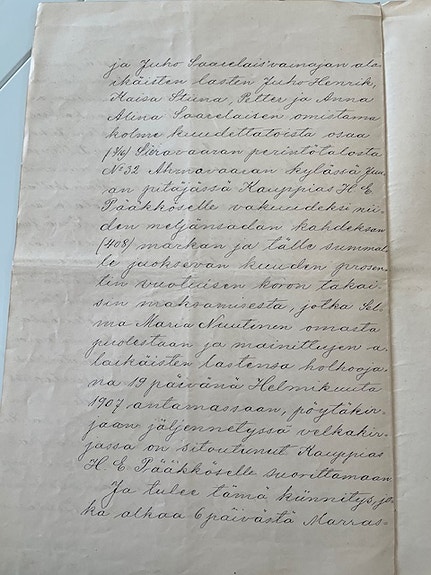 ja Juho Saarelais vainajan ala-
ikäisten lasten Juho Henrik,
Kaisa Stiina, Petter ja Anna
Alina Saarelaisen omistama
kolme kuudettatoista osaa
(3/16) Sieravaaran perintötalosta
No 32 Ahmavaaran kylässä Juu-
an pitäjässä Kauppias H. E.
Pääkköselle vakuudeksi nii-
den neljänsadan kahdeksan
(408) markan ja tälle summal-
le juoksevan kuuden prosen-
tin vuotuisen koron takai-
sin maksamisesta, jotka Sel-
ma Maria Nuutinen omasta
puolestaan ja mainittujen a-
laikäisten lastensa holhooja-
na 19 päivänä Helmikuuta
1907 antamassaan, pöytäkir-
jaan jäljennetyssä velkakir-
jassa on sitoutunut Kauppias
H. E. Pääkköselle suorittamaan
Ja tulee tämä kiinnitys, jo-
ka alkaa 6 päivästä Marras-